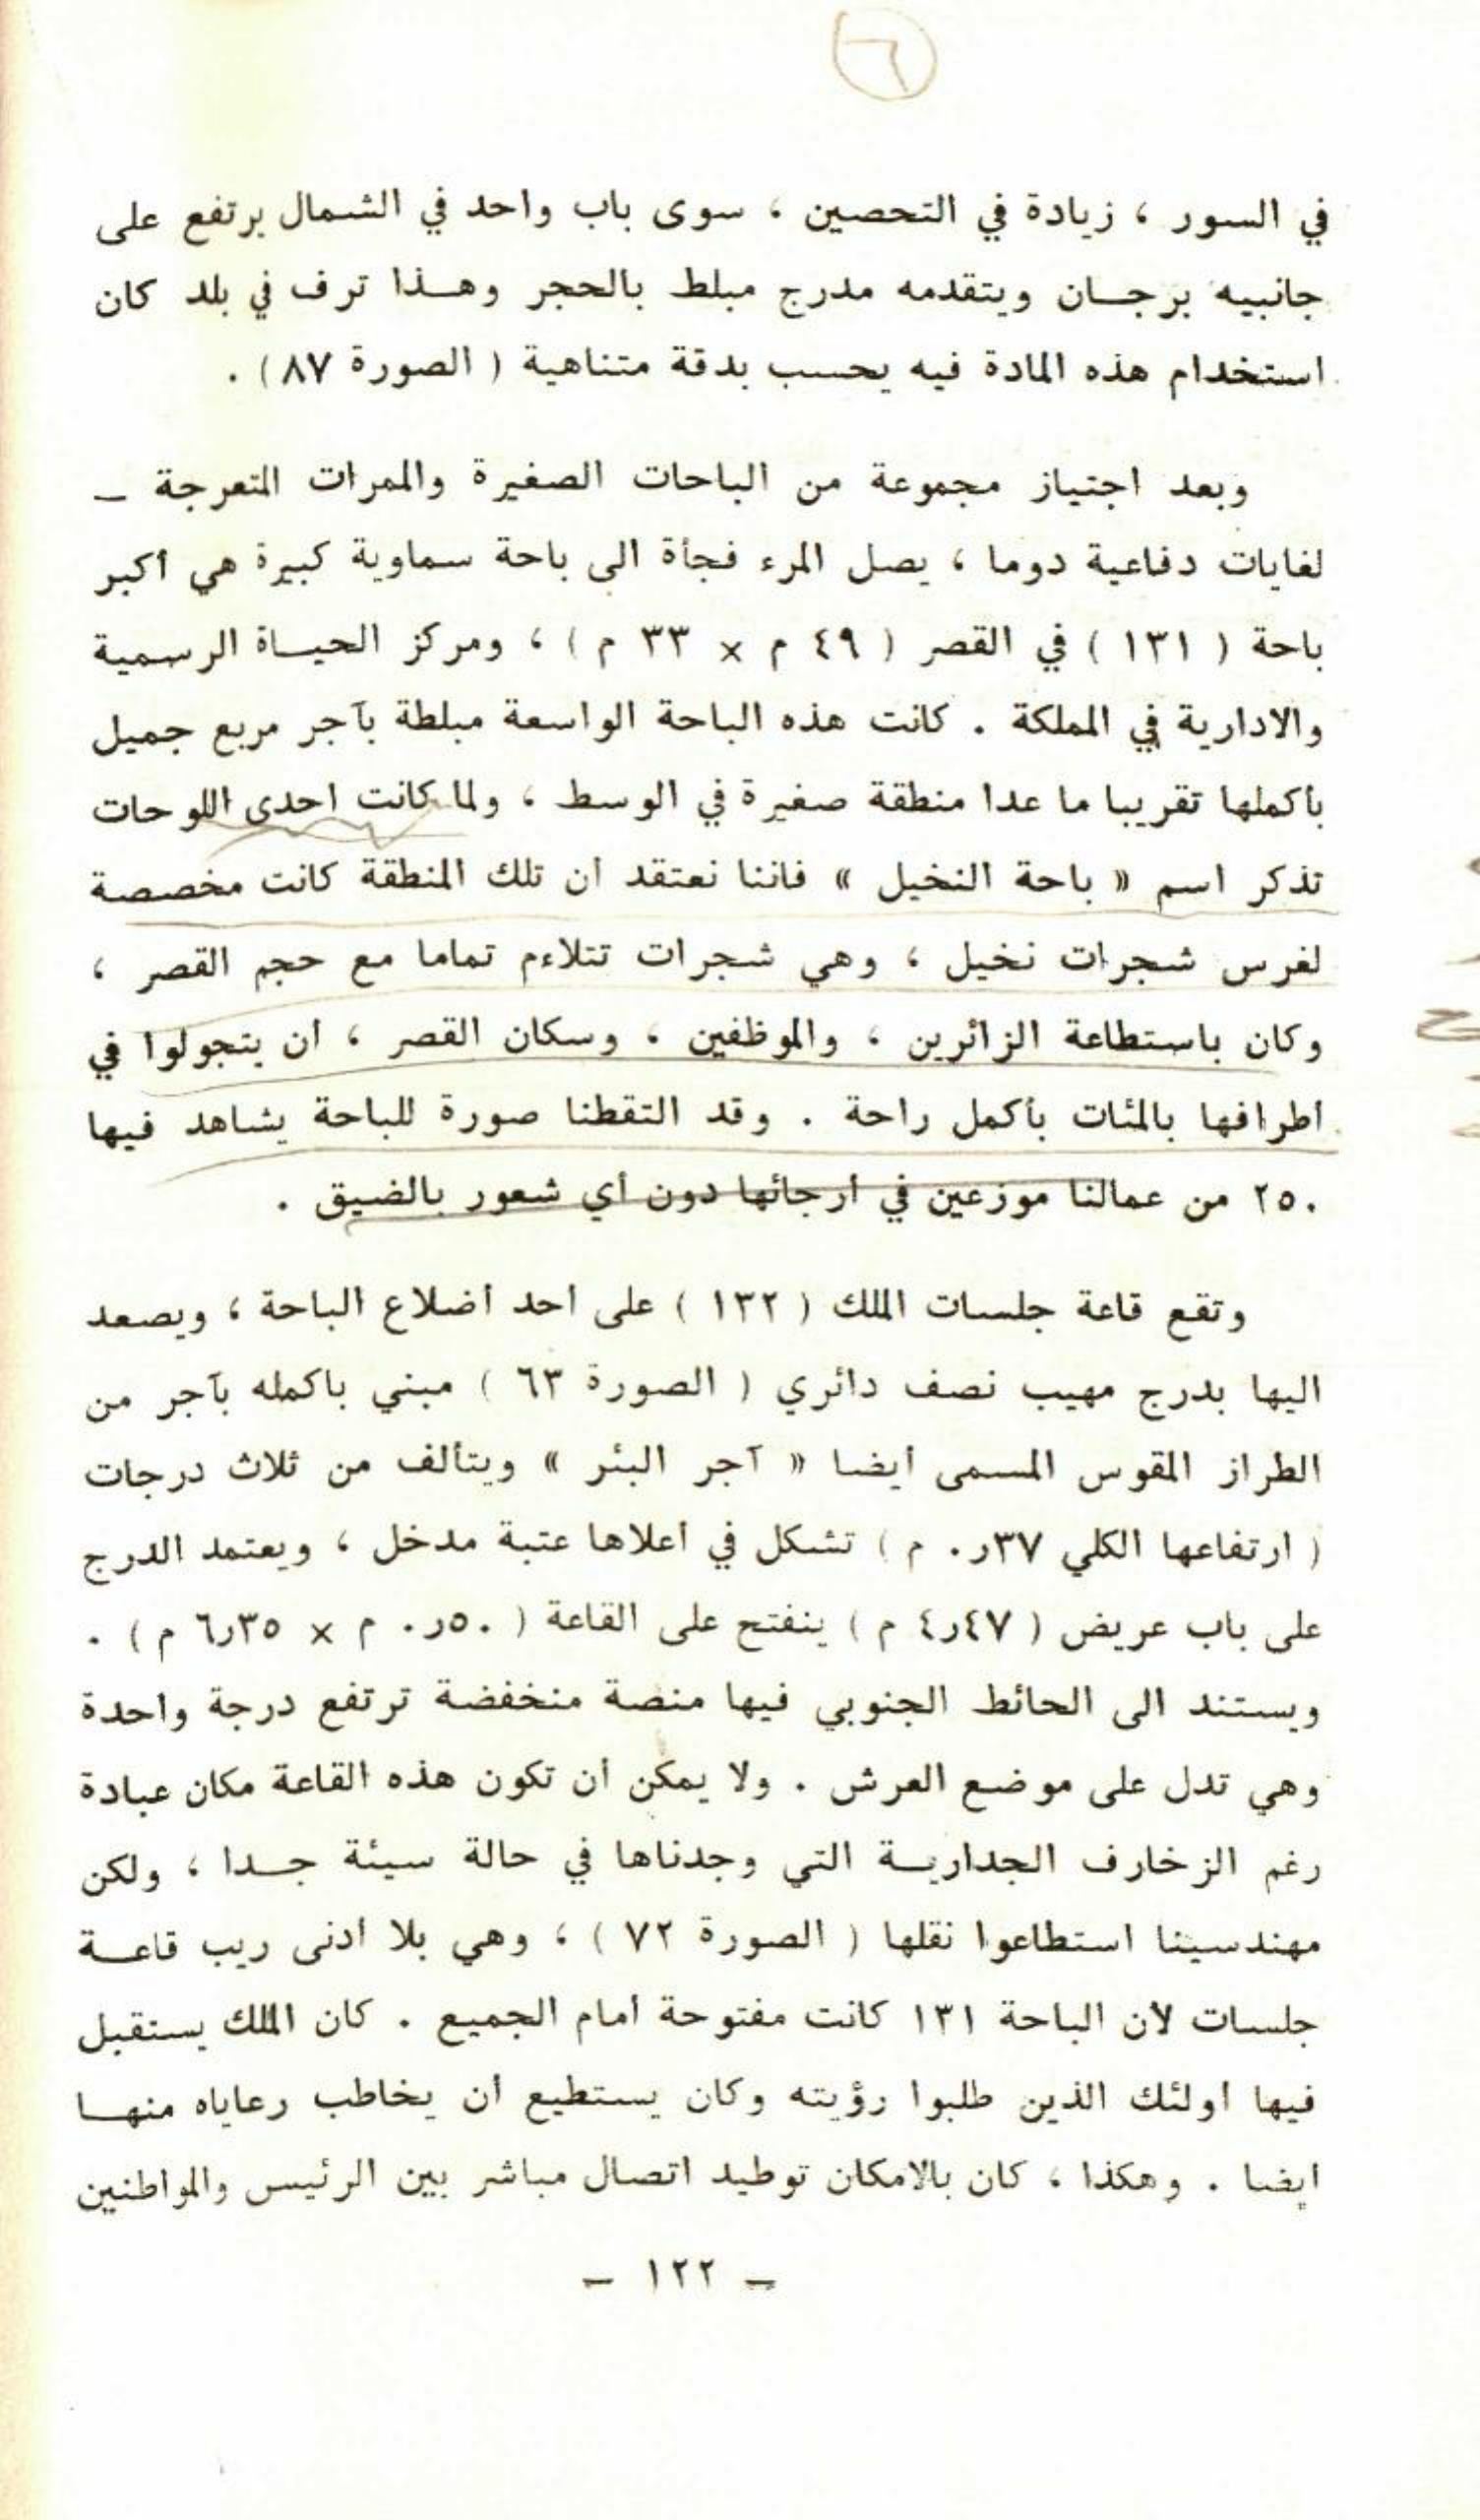 ٦
في السور ، زيادة في التحصين ، سوى باب واحد في الشمال يرتفع على
جانبيه برجـــان ويتقدمه مدرج مبلط بالحجر وهـــذا ترف في بلد كان
استخدام هذه المادة فيه يحسب بدقة متناهية ( الصورة ٨٧ ) .
وبعد اجتياز مجموعة من الباحات الصغيرة والممرات المتعرجة ـ
لغايات دفاعية دوما ، يصل المرء فجأة الى باحة سماوية كبيرة هي أكبر
باحة ( ١٣١ ) في القصر ( ٤٩ م × ٣٣ م ) ، ومركز الحيـــاة الرسمية
والادارية في المملكة . كانت هذه الباحة الواسعة مبلطة بآجر مربع جميل
بأكملها تقريبا ما عدا منطقة صغيرة في الوسط ، ولما كانت احدى اللوحات
تذكر اسم « باحة النخيل » فاننا نعتقد ان تلك المنطقة كانت مخصصة
لغرس شجرات نخيل ، وهي شجرات تتلاءم تماما مع حجم القصر ،
وكان باستطاعة الزائرين ، والموظفين ، وسكان القصر ، أن يتجولوا في
أطرافها بالمئات بأكمل راحة . وقد التقطنا صورة للباحة يشاهد فيها
٢٥٠ من عمالنا موزعين في ارجائها دون أي شعور بالضيق .
وتقع قاعة جلسات الملك ( ١٣٢ ) على أحد أضلاع الباحة ، ويصعد
اليها بدرج مهيب نصف دائري ( الصورة ٦٣ ) مبني باكمله بآجر من
الطراز المقوس المسمى أيضا « آجر البئر » ويتألف من ثلاث درجات
( ارتفاعها الكلي ٣٧ر٠ م ) تشكل في أعلاها عتبة مدخل ، ويعتمد الدرج
على باب عريض ( ٤٧ر٤ م ) ينفتح على القاعة ( ٥٠ر٠ م × ٣٥ر٦ م ) .
ويستند الى الحائط الجنوبي فيها منصة منخفضة ترتفع درجة واحدة
وهي تدل على موضع العرش . ولا يمكن ان تكون هذه القاعة مكان عبادة
رغم الزخارف الجداريـــة التي وجدناها في حالة سيئة جـــدا ، ولكن
مهندسينا استطاعوا نقلها ( الصورة ٧٢ ) ، وهي بلا أدنى ريب قاعـــة
جلسات لأن الباحة ١٣١ كانت مفتوحة أمام الجميع . كان الملك يستقبل
فيها اولئك الذين طلبوا رؤيته وكان يستطيع أن يخاطب رعاياه منهـــا
ايضا . وهكذا ، كان بالامكان توطيد اتصال مباشر بين الرئيس والمواطنين
ـ ١٢٢ ـ